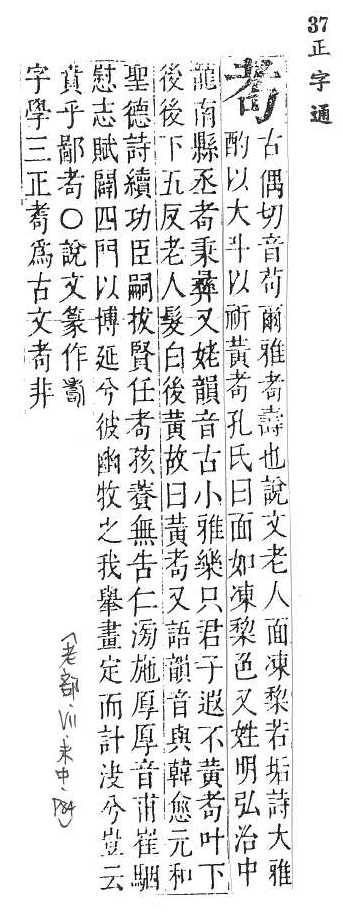 37正字通
耇
古偶切音苟爾雅耇壽也說文老人面凍黎若垢詩大雅
酌以大斗以祈黃耇孔氏曰面如凍黎色又姓明弘治中
龍南縣丞耇秉彝又姥韻音古小雅樂只君子遐不黃耇叶下
後後下五反老人髮白後黃故曰黃耇又語韻音與韓愈元和
聖德詩續功臣嗣拔賢任耇孩養無告仁滂施厚厚音甫崔駰
慰志賦闢四門以博延兮彼幽牧之我舉畫定而計決兮豈云
賁乎鄙耇○說文篆作
字學三正 爲古文耇非
「老部‧VII‧未中‧P84」